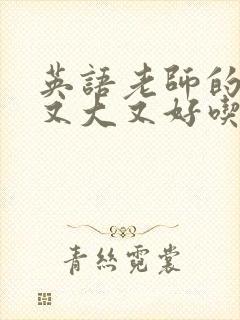 英語老師的
又大又好喫
青絲霓裳